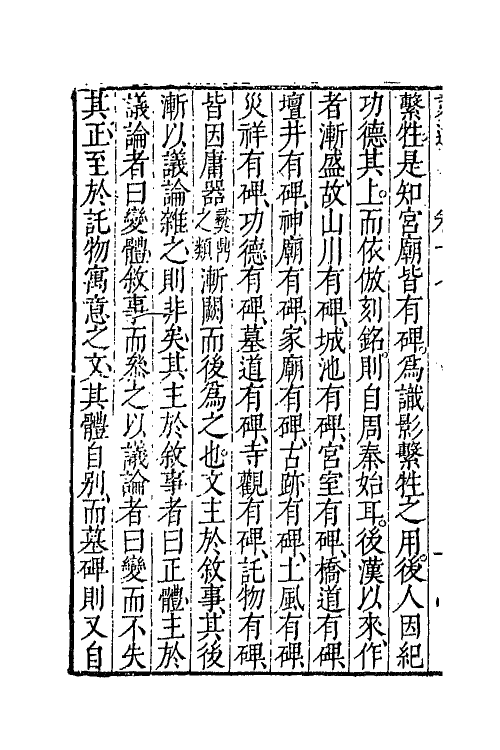 繫牲是知宮廟皆有碑為識影繫牲之用後人因紀
功德其上而依倣刻銘則自周秦始耳後漢以來作
者漸盛故山川有碑城池有碑宮室有碑橋道有碑
壇井有碑神廟有碑家廟有碑古跡有碑土風有碑
災祥有碑功德有碑墓道有碑寺觀有碑託物有碑
皆因庸器彛鼎之類漸闕而後為之也文主於敘事其後
漸以議論雜之則非矣其主於敘事者曰正體主於
議論者曰變體敘事而參之以議論者曰變而不失
其正至於託物寓意之文其體自別而墓碑則又自